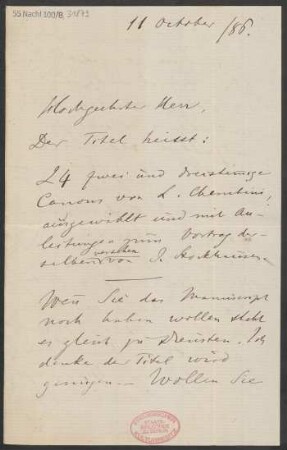 SS Nachl 100/B, 31873
11 October /86.
Hochgeehrter Herr,
Der Titel heisst:
24 zwei und dreistimmige
Canons von L. Cherubini,
ausgewählt und mit An-
leitungen zum Vortrag der-
selben versehen von J. Stockhausen
Wenn Sie das Manuscript
noch haben wollen steht
es gleich zu Diensten. Ich
denke der Titel wird
genügen. – Wollen Sie